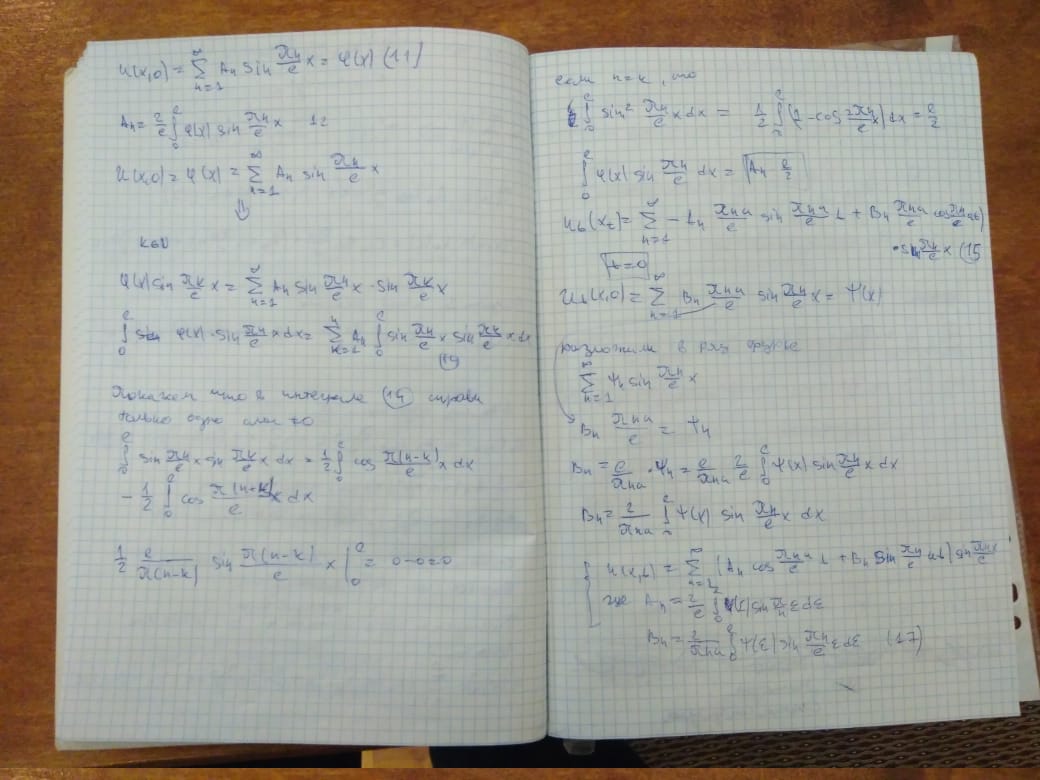 u(x,0) = ∑_{n=1}^{∞} Aₙ sin πn/ℓ x = φ(x) (11)
Aₙ = 2/ℓ ∫₀^ℓ φ(x) sin πn/ℓ x 12
u(x,0) = φ(x) = ∑_{n=1}^{∞} Aₙ sin πn/ℓ x
⇓
k∈N
φ(x) sin πk/ℓ x = ∑_{n=1}^{∞} Aₙ sin πn/ℓ x · sin πk/ℓ x
∫₀^ℓ φ(x) · sin πn/ℓ x dx = ∑ Aₙ ∫₀^ℓ sin πn/ℓ x sin πk/ℓ x dx
(14)
Покажем что в интеграле (14) справа
только одно слаг ≠0
∫₀^ℓ sin πn/ℓ x sin πk/ℓ x dx = 1/2 ∫₀^ℓ cos π(n-k)/ℓ x dx
- 1/2 ∫₀^ℓ cos π(n+k)/ℓ x dx
1/2 ℓ/π(n-k) sin π(n-k)/ℓ x |₀^ℓ = 0-0=0
если n=k, то
∫₀^ℓ sin² πn/ℓ x dx = 1/2 ∫₀^ℓ (1 - cos 2πn/ℓ x) dx = ℓ/2
∫₀^ℓ φ(x) sin πn/ℓ dx = Aₙ ℓ/2
∑_{n=1}^{∞} - Aₙ πna/ℓ sin πna/ℓ t + Bₙ πna/ℓ cos πn/ℓ at)
· sin πn/ℓ x (15
t=0
uₜ(x,0) = ∑_{n=1}^{∞} Bₙ πna/ℓ sin πn/ℓ x = ψ(x)
разложим в ряд фурье
∑_{n=1}^{∞} ψₙ sin πn/ℓ x
Bₙ πna/ℓ = ψₙ
Bₙ = ℓ/πna · ψₙ = ℓ/πna 2/ℓ ∫₀^ℓ ψ(x) sin πn/ℓ x dx
Bₙ = 2/πna ∫₀^ℓ ψ(x) sin πn/ℓ x dx
u(x,t) = ∑_{n=1}^{∞} (Aₙ cos πna/ℓ t + Bₙ sin πn/ℓ at) sin πnx/ℓ
где Aₙ = 2/ℓ ∫₀^ℓ φ(ξ) sin πn/ℓ ξ dξ
Bₙ = 2/πna ∫₀^ℓ ψ(ξ) sin πn/ℓ ξ dξ (17)